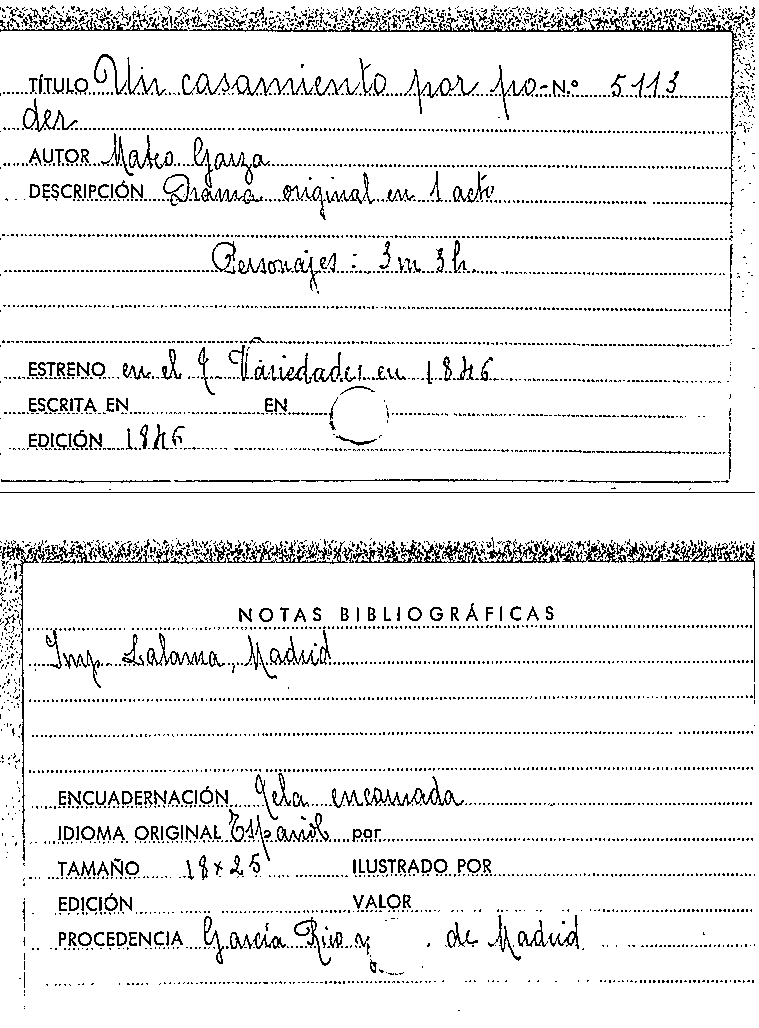 TÍTULO Un casamiento por po- N.º 5113
der
AUTOR Mateo Garza
DESCRIPCIÓN Drama original en 1 acto
Personajes: 3m 3h.
ESTRENO en el T. Variedades en 1846
ESCRITA EN EN
EDICIÓN 1846
NOTAS BIBLIOGRÁFICAS
Imp. Lalama, Madrid
ENCUADERNACIÓN Tela encarnada
IDIOMA ORIGINAL Español por
TAMAÑO 18x25 ILUSTRADO POR
EDICIÓN VALOR
PROCEDENCIA García Rico y de Madrid